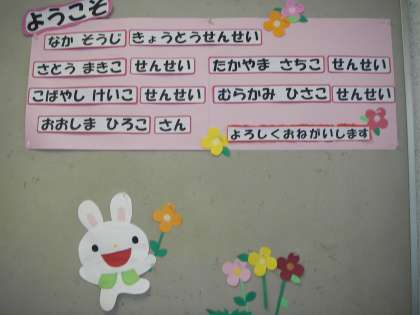 ようこそ
なか そうじ きょうとうせんせい
さとう まきこ せんせい たかやま さちこ せんせい
こばやし けいこ せんせい むらかみ ひさこ せんせい
おおしま ひろこ さん
よろしくおねがいします